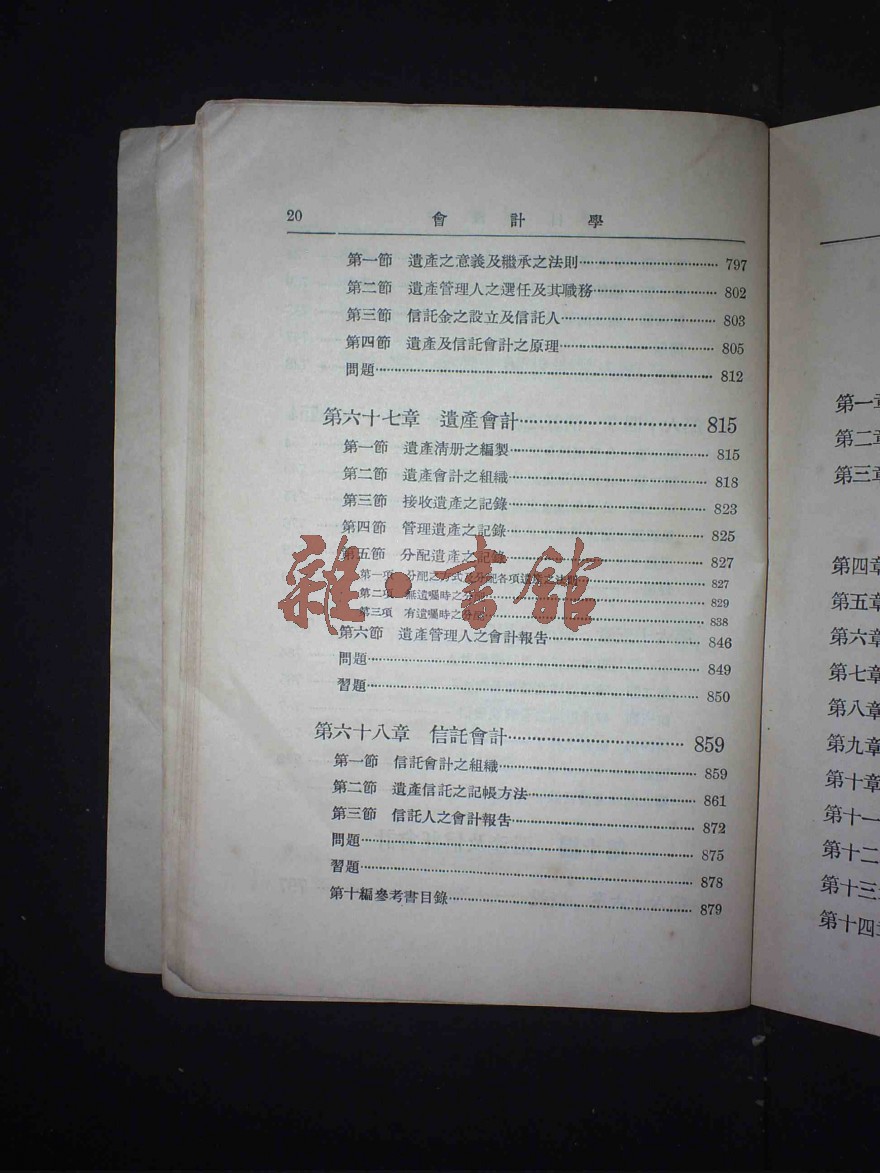 20 會計學
第一節 遺產之意義及繼承之法則 797
第二節 遺產管理人之選任及其職務 802
第三節 信託金之設立及信託人 803
第四節 遺產及信託會計之原理 805
問題 812
第六十七章 遺產會計 815
第一節 遺產淸册之編製 815
第二節 遺產會計之組織 818
第三節 接收遺產之記錄 823
第四節 管理遺產之記錄 825
第五節 分配遺產之記錄 827
第一項 分配之方式及分配各項遺產之法則 827
第二項 無遺囑時之分配 829
第三項 有遺囑時之分配 838
第六節 遺產管理人之會計報告 846
問題 849
習題 850
第六十八章 信託會計 859
第一節 信託會計之組織 859
第二節 遺產信託之記帳方法 861
第三節 信託人之會計報告 872
問題 875
習題 878
第十編參考書目錄 879
雜·書館
第一章
第二章
第三章
第四章
第五章
第六章
第七章
第八章
第九章
第十章
第十一
第十二
第十三
第十四